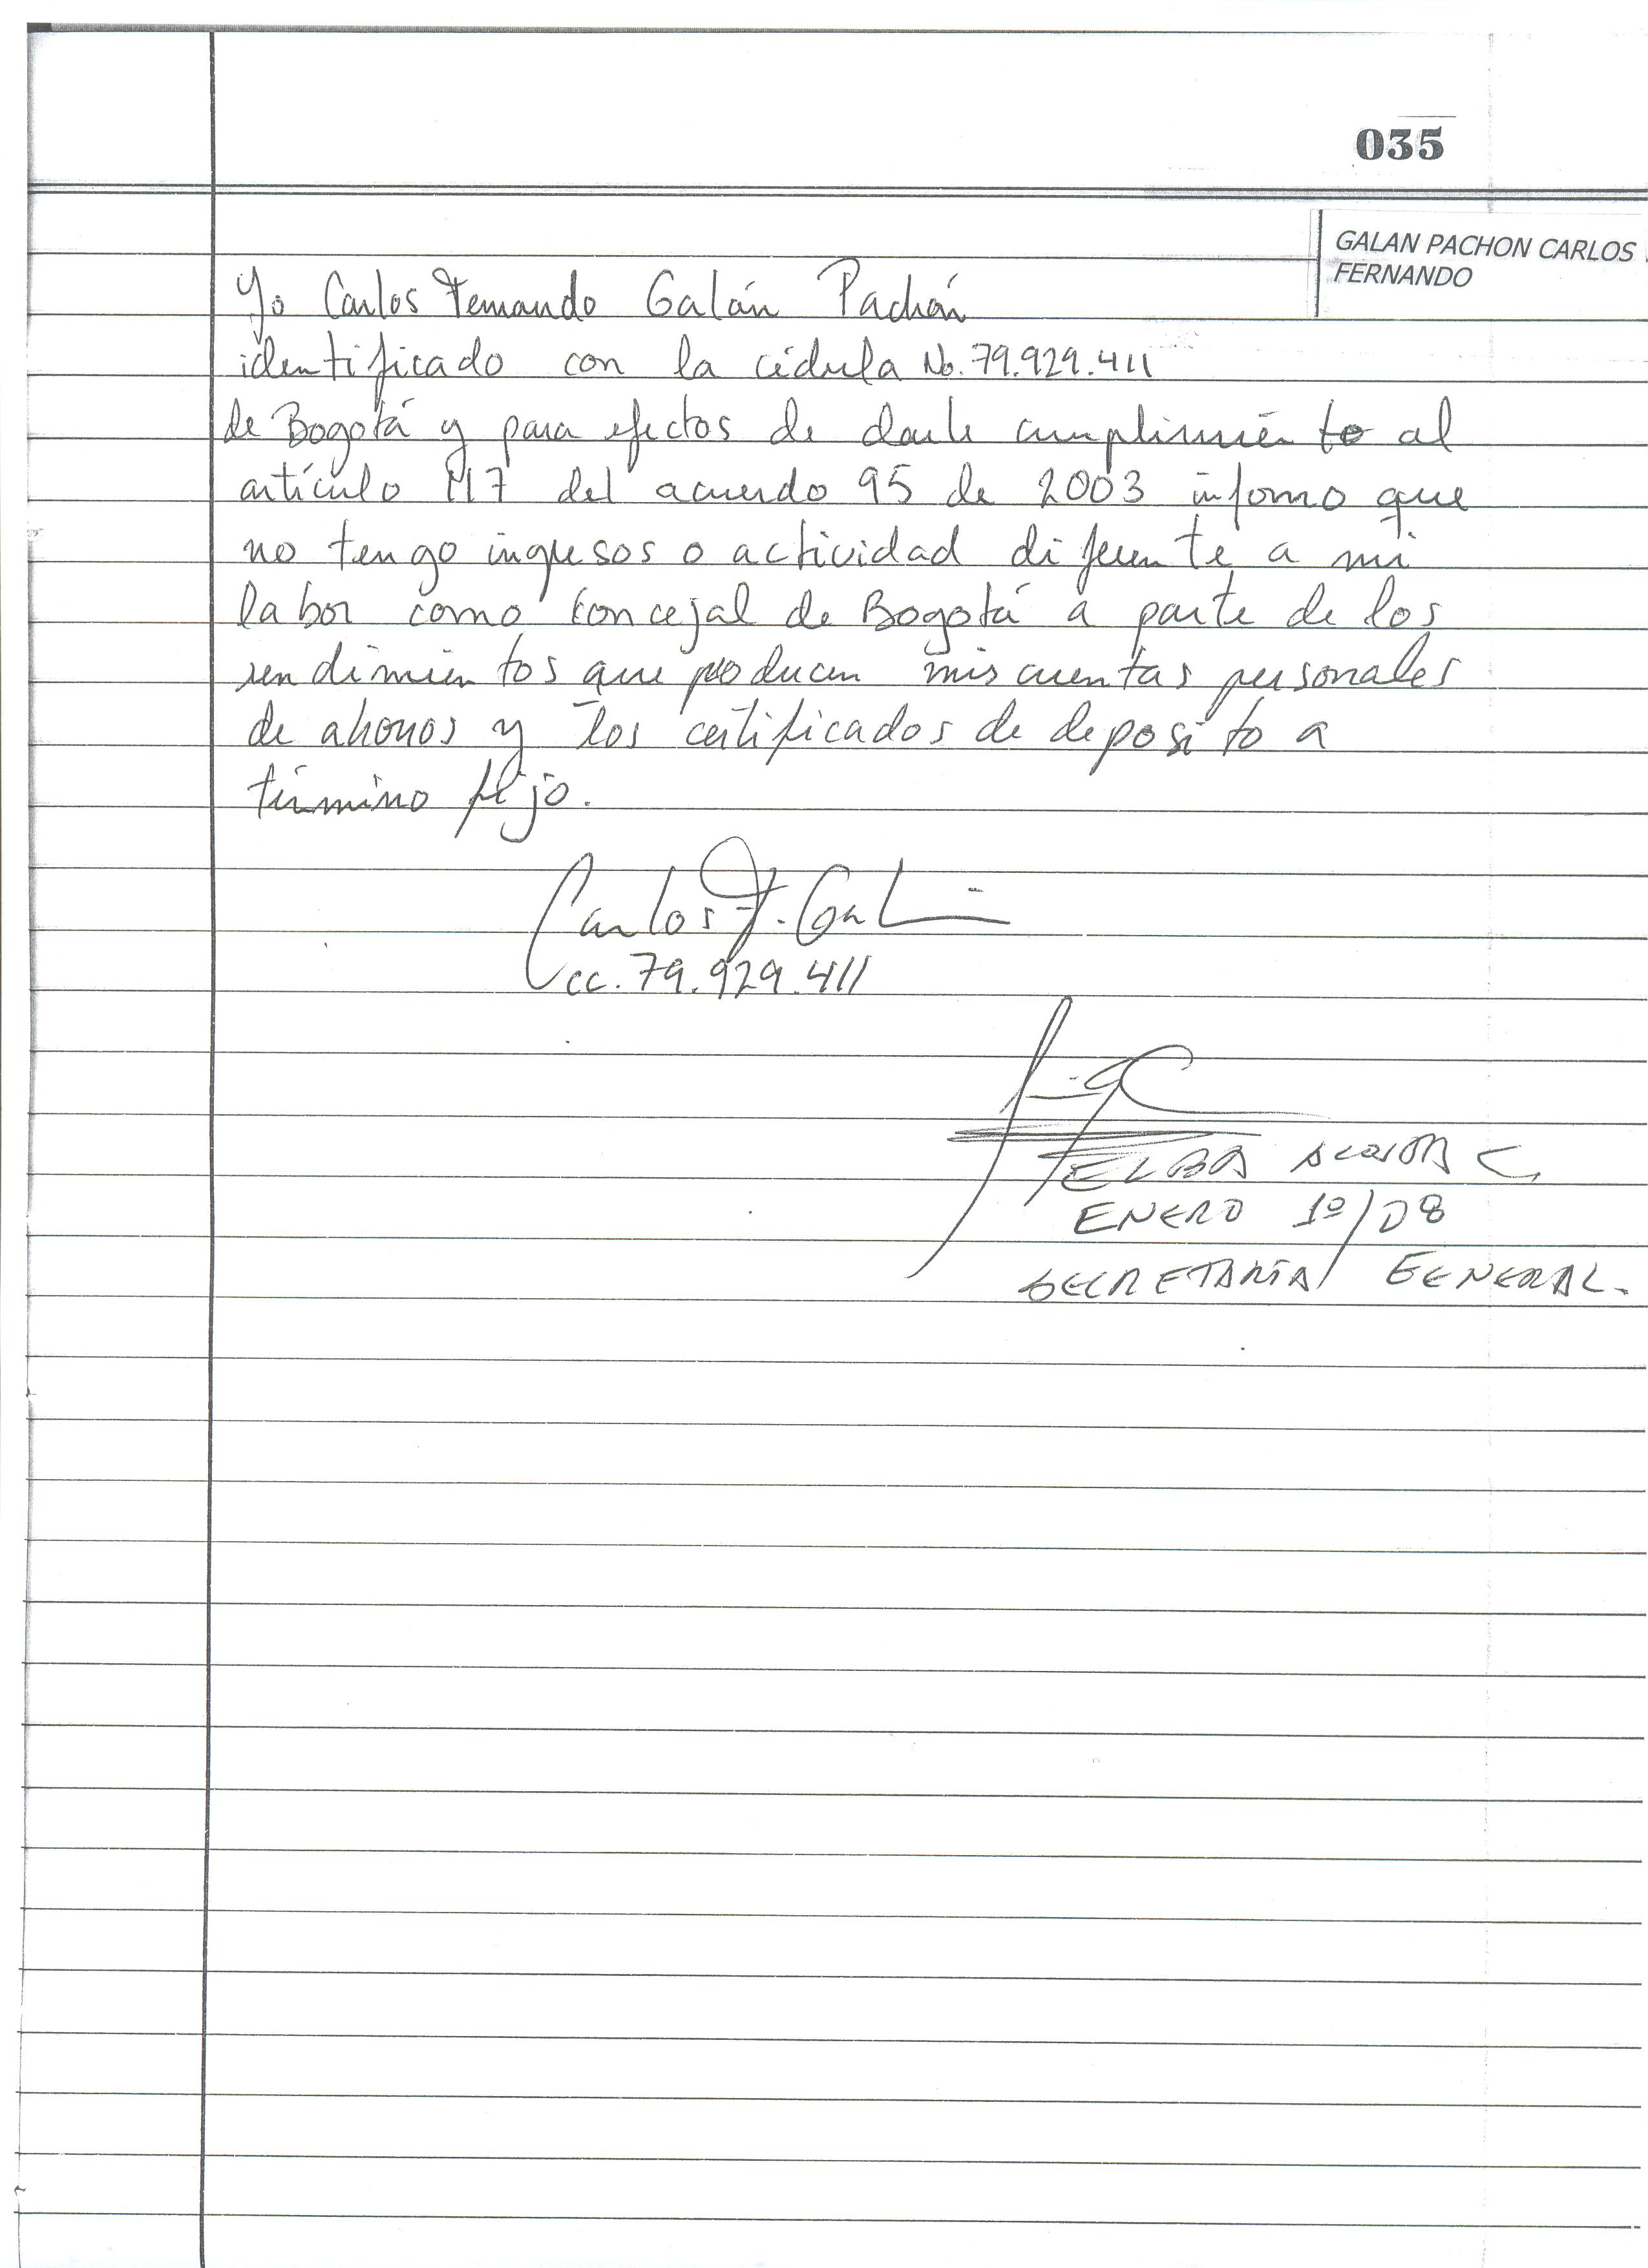 035
GALAN PACHON CARLOS
FERNANDO
Yo Carlos Fernando Galán Pachón
identificado con la cédula No. 79.929.411
de Bogotá y para efectos de darle cumplimiento al
artículo 117 del acuerdo 95 de 2003 informo que
no tengo ingresos o actividad diferente a mi
labor como concejal de Bogotá a parte de los
rendimientos que producen mis cuentas personales
de ahorros y los certificados de deposito a
término fijo.
Carlos F. Galán
cc. 79.929.411
ELBA C.
ENERO 1º/08
SECRETARIA GENERAL.